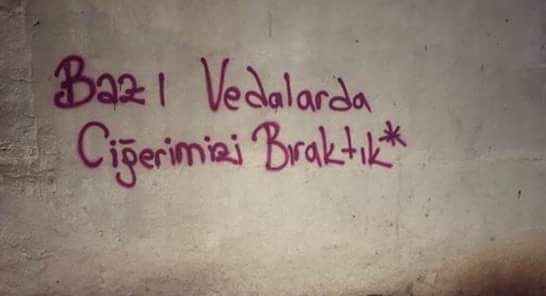 Bazı Vedalarda
Ciğerimizi Bıraktık*